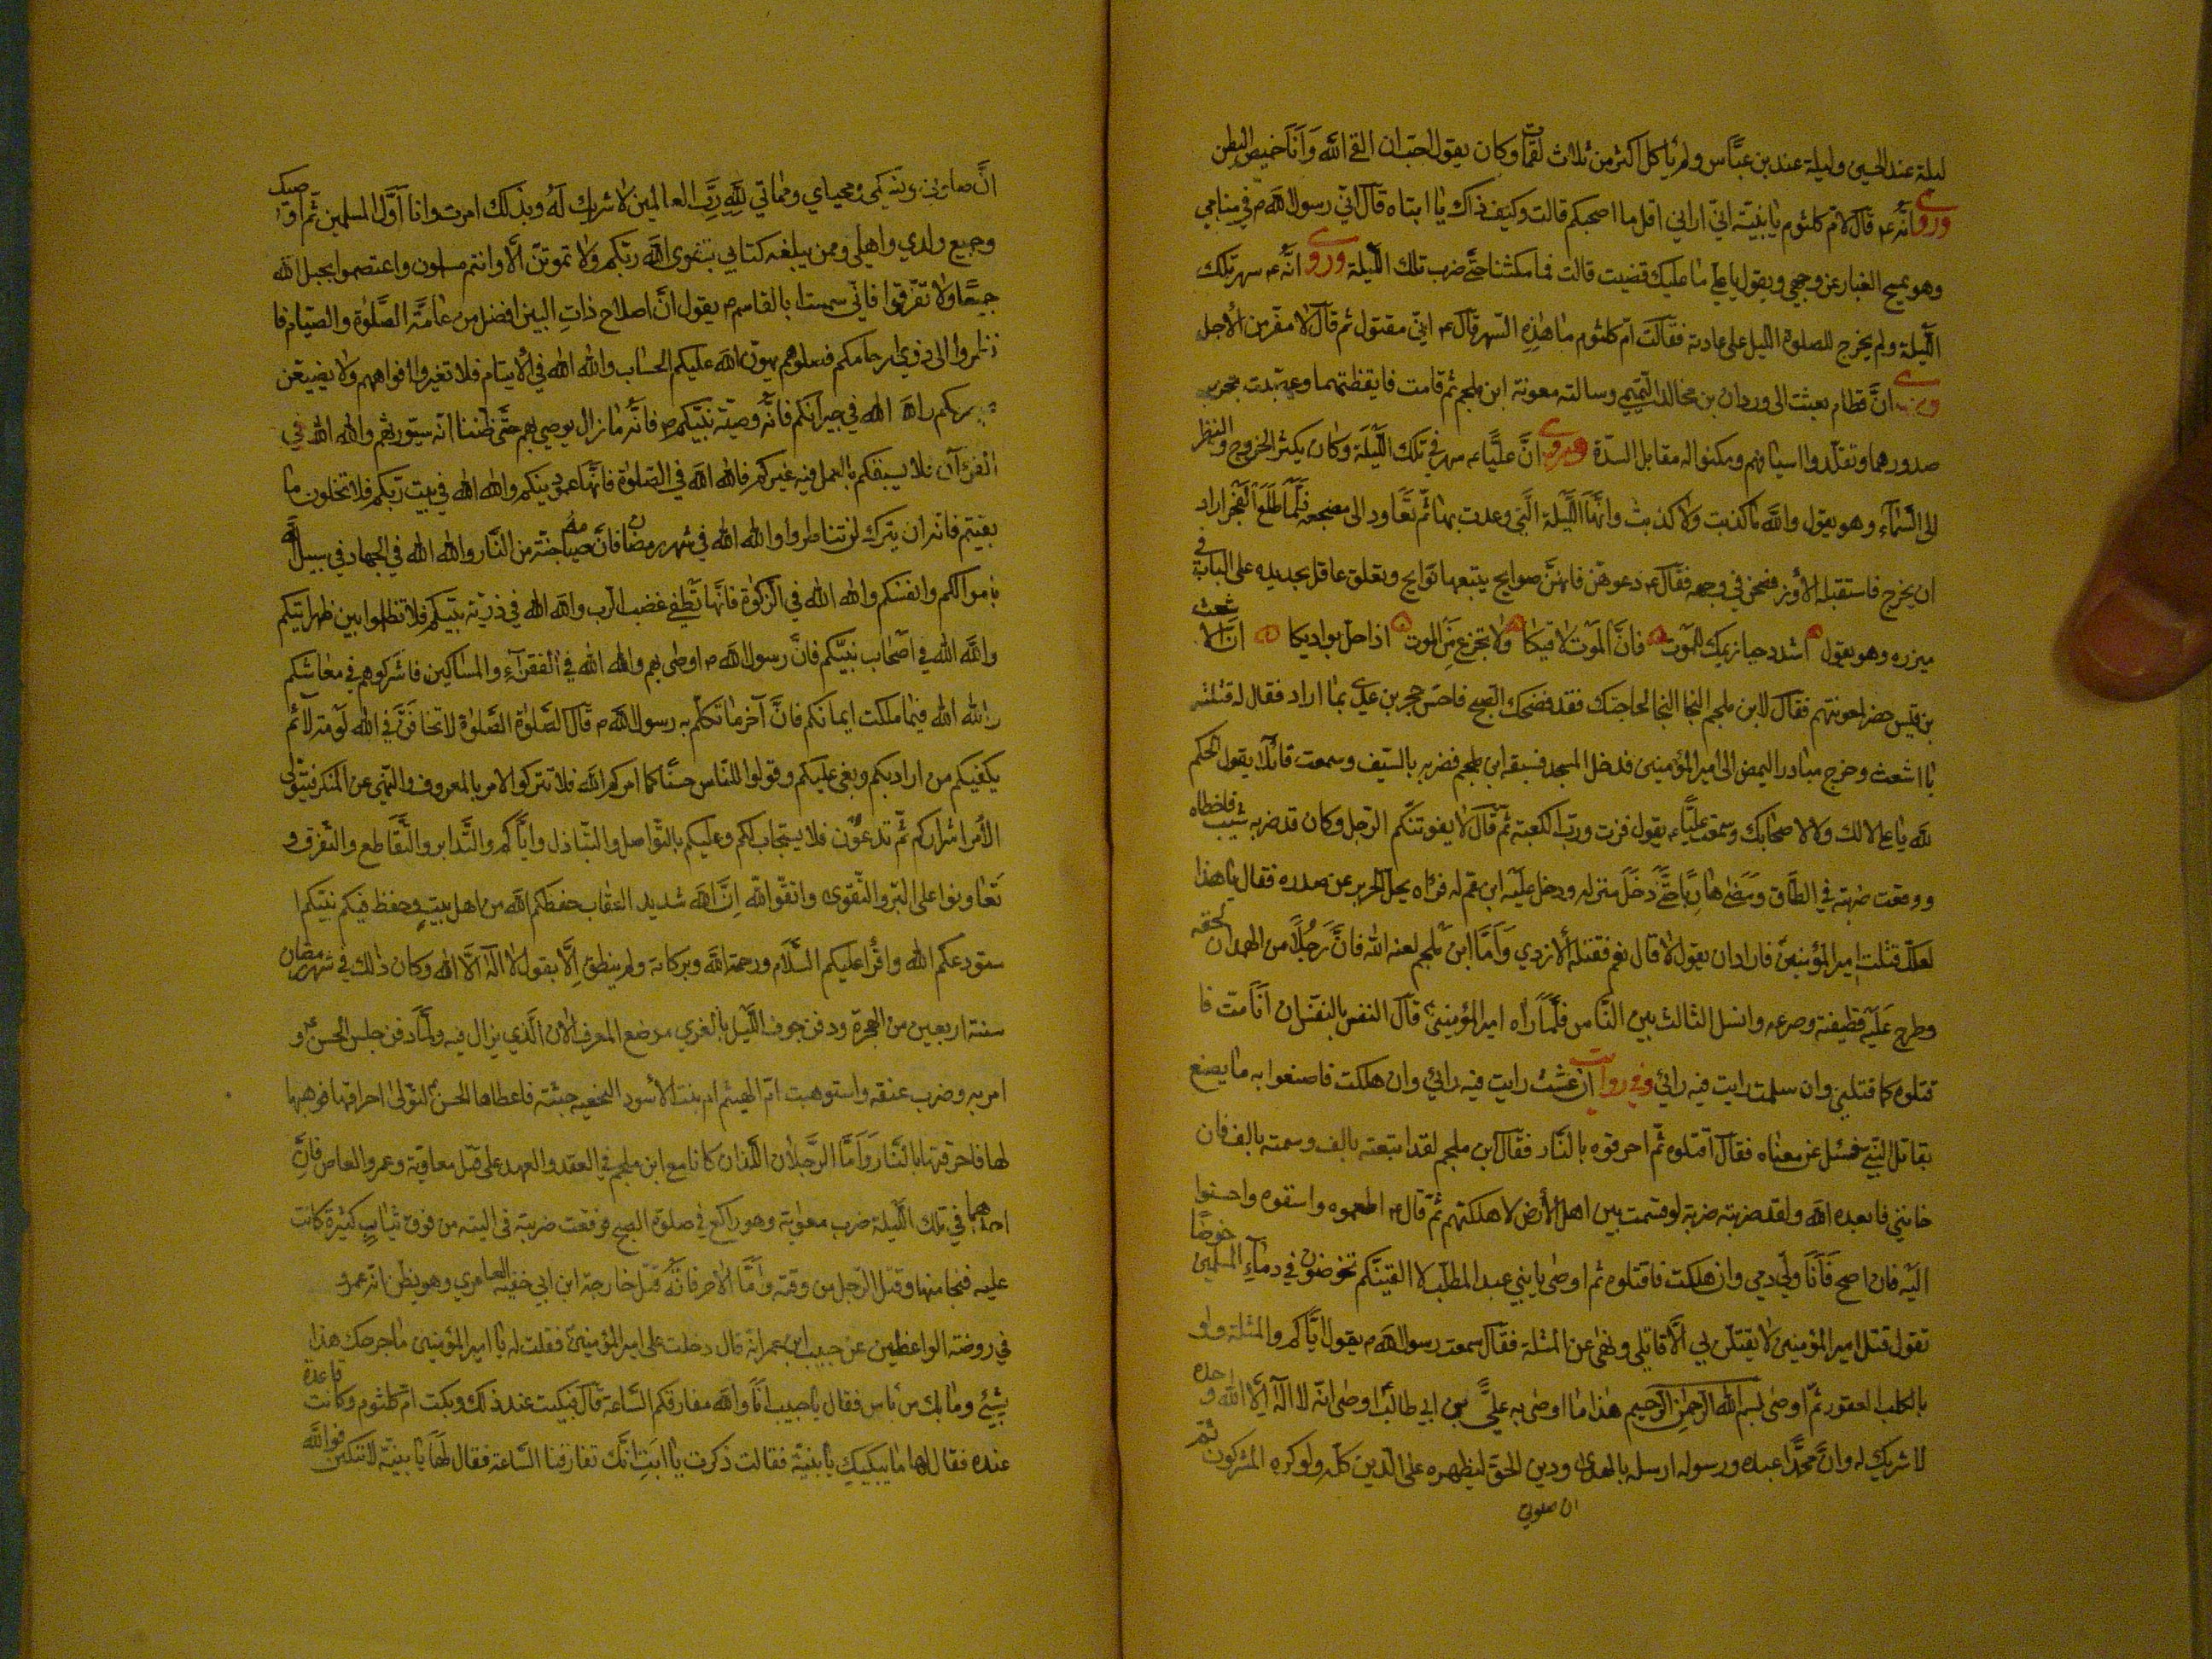 ليلة عند الحسين وليلة عند بن عباس ولم ياكل اكثر من ثلاث لقمات وكان يقول احب ان القى الله وانا خميص البطن
وروي انه ع قال لام كلثوم يا بنية اني اراني اقل ما اصحبكم قالت وكيف ذاك يا ابتاه قال اني رسول الله ص في منامي
وهو يمسح الغبار عن وجهي ويقول يا علي ما عليك قضيت قالت فما مكثنا حتى ضرب تلك الليلة وروي انه ع سهر تلك
الليلة ولم يخرج للصلوة الليل على عادته فقالت ام كلثوم ما هذه السهر قال ع اني مقتول ثم قال لا مفر من الاجل
وروي ان قطام بعثت الى وردان بن مجالد التميمي وسالته معونة ابن ملجم ثم قامت فايقظتهما وعصبت بحرير
صدورهما وتقلدوا اسيافهم ومكنوا له مقابل السدة وروي ان عليا ع سهر في تلك الليلة وكان يكثر الخروج والنظر
الى السماء وهو يقول والله ما كذبت ولا كذبت وانها الليلة التي وعدت بها ثم تعاود الى مضجعه فلما طلع الفجر اراد
ان يخرج فاستقبله الاوز فصحن في وجهه فقال ع دعوهن فانهن صوايح يتبعها نوايح وتعلق عاقل بحديده على الباب في
ميزره وهو يقول اشدد حيازيمك للموت فان الموت لاقيكا ولا تجزع من الموت اذا حل بواديكا ان الاشعث
بن قيس حضر لمعونتهم فقال لابن ملجم النجا النجا لحاجتك فقد فضحك الصبح فاحس حجر بن عدي بما اراد فقال له قتلته
يا اشعث وخرج مبادرا ليمضي الى امير المؤمنين فدخل المسجد فسبقه ابن ملجم فضربه بالسيف وسمعت قائلا يقول الحكم
لله يا علي لا لك ولا لاصحابك وسمعت عليا ع يقول فزت ورب الكعبة ثم قال لا يفوتنكم الرجل وكان قد ضربه شبيب فاخطاه
ووقعت ضربته في الطاق ومضى هاربا حتى دخل منزله ودخل عليه ابن عم له فراه يحل الحرير عن صدره فقال ما هذا
لعلك قتلت امير المؤمنين فاراد ان يقول لا قال نعم فقتله الازدي واما ابن ملجم لعنه الله فان رجلا من الهمدان لحقه
وطرح عليه قطيفة وصرعه وانسل الثالث بين الناس فلما راه امير المؤمنين قال النفس بالنفس ان انا مت فا
قتلوه كما قتلني وان سلمت رايت فيه رائي وفي رواية ان عشت رايت فيه رائي وان هلكت فاصنعوا به ما يصنع
بقاتل النبي فسئل عن معناه فقال اقتلوه ثم احرقوه بالنار فقال ابن ملجم لقد ابتعته بالف وسمته بالف فان
خانني فابعده الله ولقد ضربته ضربة لو قسمت بين اهل الارض لاهلكتهم ثم قال ع اطعموه واسقوه واحسنوا
اليه فان اصح فانا ولي دمي وان هلكت فاقتلوه ثم اوصى يا بني عبد المطلب لا القينكم تخوضون في دماء المسلمين خوضا
تقول قتل امير المؤمنين لا يقتلن بي الا قاتلي ونهى عن المثلة فقال سمعت رسول الله ص يقول اياكم والمثلة ولو
بالكلب العقور ثم اوصى بسم الله الرحمن الرحيم هذا ما اوصى به علي بن ابي طالب اوصى انه لا اله الا الله وحده و
لا شريك له وان محمدا عبده ورسوله ارسله بالهدى ودين الحق ليظهره على الدين كله ولو كره المشركون ثم
ان صلوتي
ان صلوتي ونسكي ومحياي ومماتي لله رب العالمين لا شريك له وبذلك امرت وانا اول المسلمين ثم اوصيك
وجميع ولدي واهلي ومن يبلغه كتابي بتقوى الله ربكم ولا تموتن الا وانتم مسلمون واعتصموا بحبل الله
جميعا ولا تفرقوا فاني سمعت ابا القاسم ص يقول ان اصلاح ذات البين افضل من عامة الصلوة والصيام فا
نظروا الى ذوي ارحامكم فصلوهم يهون الله عليكم الحساب والله الله في الايتام فلا تغيروا افواههم ولا يضيعن
والله الله في جيرانكم فانه وصية نبيكم ص فانه ما زال يوصي بهم حتى ظننا انه سيورثهم والله الله في
القرآن فلا يسبقكم بالعمل فيه غيركم فالله الله في الصلوة فانها عمود دينكم والله الله في بيت ربكم فلا تخلون ما
بقيتم فانه ان يترك لن تناظروا والله الله في شهر رمضان فان صيامه جنة من النار والله الله في الجهاد في سبيل الله
باموالكم وانفسكم والله الله في الزكوة فانها تطفي غضب الرب والله الله في ذرية نبيكم فلا تظلموا بين ظهرانيكم
والله الله في اصحاب نبيكم فان رسول الله ص اوصى بهم والله الله في الفقراء والمساكين فاشركوهم في معاشكم
والله الله فيما ملكت ايمانكم فان آخر ما تكلم به رسول الله ص قال الصلوة الصلوة لا تخافن في الله لومة لائم
يكفيكم من ارادكم وبغى عليكم وقولوا للناس حسنا كما امركم الله فلا تتركوا الامر بالمعروف والنهي عن المنكر فيتولى
الامر اشراركم ثم تدعون فلا يستجاب لكم وعليكم بالتواصل والتباذل واياكم والتدابر والتقاطع والتفرق و
تعاونوا على البر والتقوى واتقوا الله ان الله شديد العقاب حفظكم الله من اهل بيت وحفظ فيكم نبيكم ا
ستودعكم الله واقرأ عليكم السلام ورحمة الله وبركاته ولم ينطق الا يقول لا اله الا الله وكان ذلك في شهر رمضان
سنة اربعين من الهجرة ودفن جوف الليل بالغري موضع المعرف الان الذي يزال فيه ولما دفن جلس الحسن ع و
امر به وضرب عنقه واستوهبت ام الهيثم ام بنت الاسود النخعية جثته فاعطاها الحسن لتولى احراقها فوهبها
لها فاحرقتها بالنار واما الرجلان اللذان كانا مع ابن ملجم في العقد والعهد على قتل معاوية وعمرو العاص فان
احدهما في تلك الليلة ضرب معوية وهو راكع في صلوة الصبح فوقعت ضربته في اليته من فوق ثياب كثيرة كانت
عليه فنجا منها وقتل الرجل من وقته واما الاخر فانه قتل خارجة ابن ابي حنيفة العامري وهو يظن انه عمرو
في روضة الواعظين عن حبيب ابن عمر انه قال دخلت على امير المؤمنين فقلت له يا امير المؤمنين ما جرحك هذا
بشيئ وما بك من باس فقال يا حبيب انا والله مفارقكم الساعة قال فبكيت عند ذلك وبكت ام كلثوم وكانت قاعدة
عنده فقال لها ما يبكيك يا بنية فقالت ذكرت يا ابت انك تفارقنا الساعة فقال لها يا بنية لا تبكين فوالله